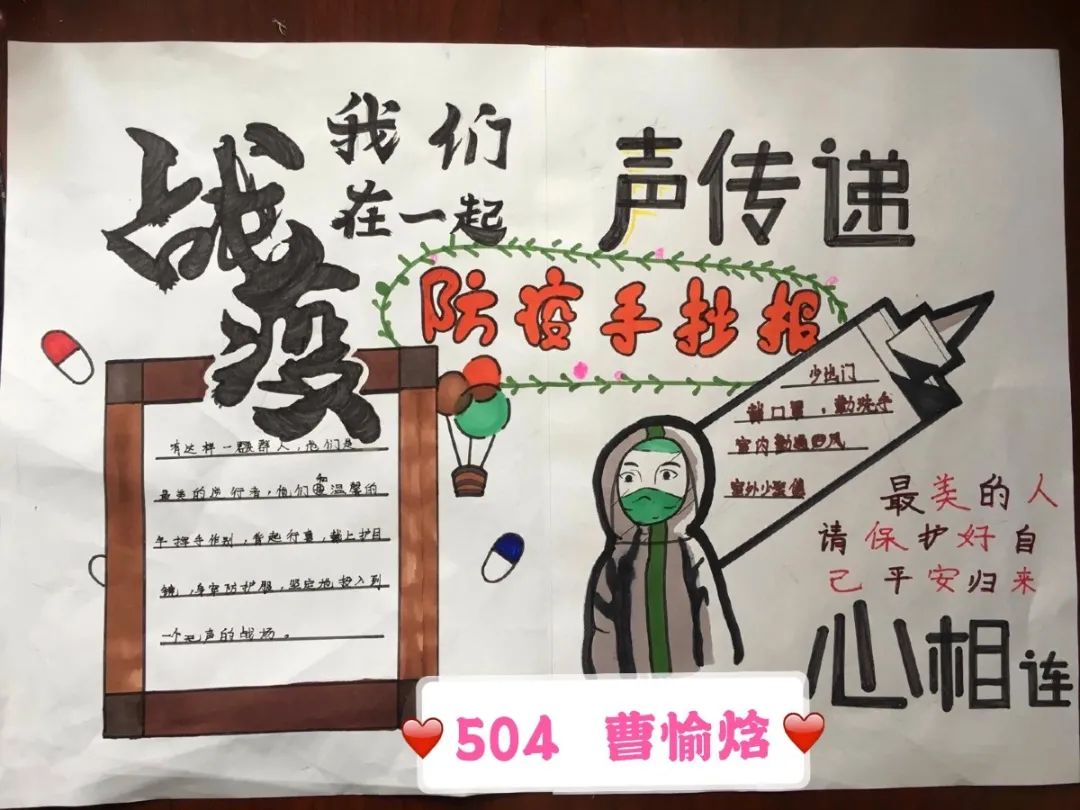 战疫
我们
在一起
声传递
防疫手抄报
有这样一群群人，他们是
最美的逆行者，他们和温馨的
年挥手作别，背起行囊，戴上护目
镜，身穿防护服，坚定地投入到
一个无声的战场。
少出门
戴口罩，勤洗手
室内勤通风
室外少聚
最美的人
请保护好自
己平安归来
心相连
504 曹愉焓